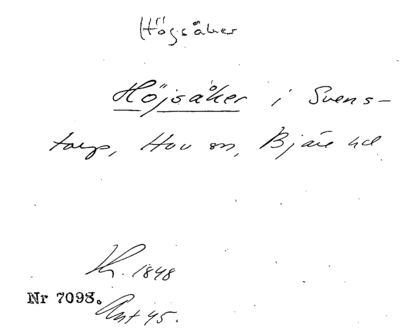 Högsåker
Höjsåker i Svens-
torp, Hov sn, Bjäre hd
Kr. 1848
Nr 7098.
Ant 45.